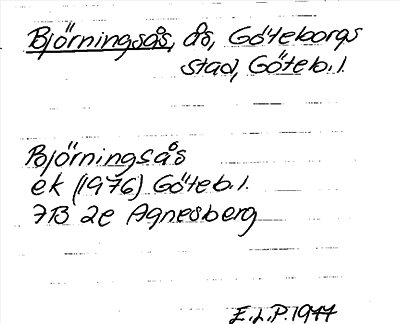 Björningsås, ås, Göteborgs
stad, Göteb. l.
Björningsås
ek (1976) Göteb. l.
7B 2e Agnesberg
E.L.P. 1977